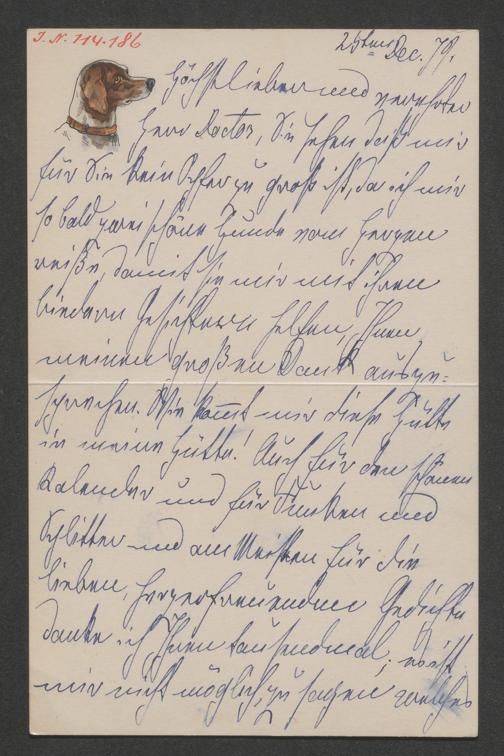 J. N. 114.186
25tens Dec. 79.
Höchst lieber und verehrter
Herr Doctor, Sie sehen daß mir
für Sie kein Opfer zu groß ist, da ich mir
so bald zwei schöne Hunde vom Herzen
reiße, damit sie mir mit ihren
biedern Gesichtern helfen, Ihnen
meinen großen Dank auszu-
sprechen. Wie kommt mir diese Güte
in meine Hütte! Auch für den schönen
Kalender und für Funken und
Splitter und am Meisten für die
lieben, herzerfreuenden Gedichte
danke ich Ihnen tausendmal; es ist
mir nicht möglich, zu sagen welches